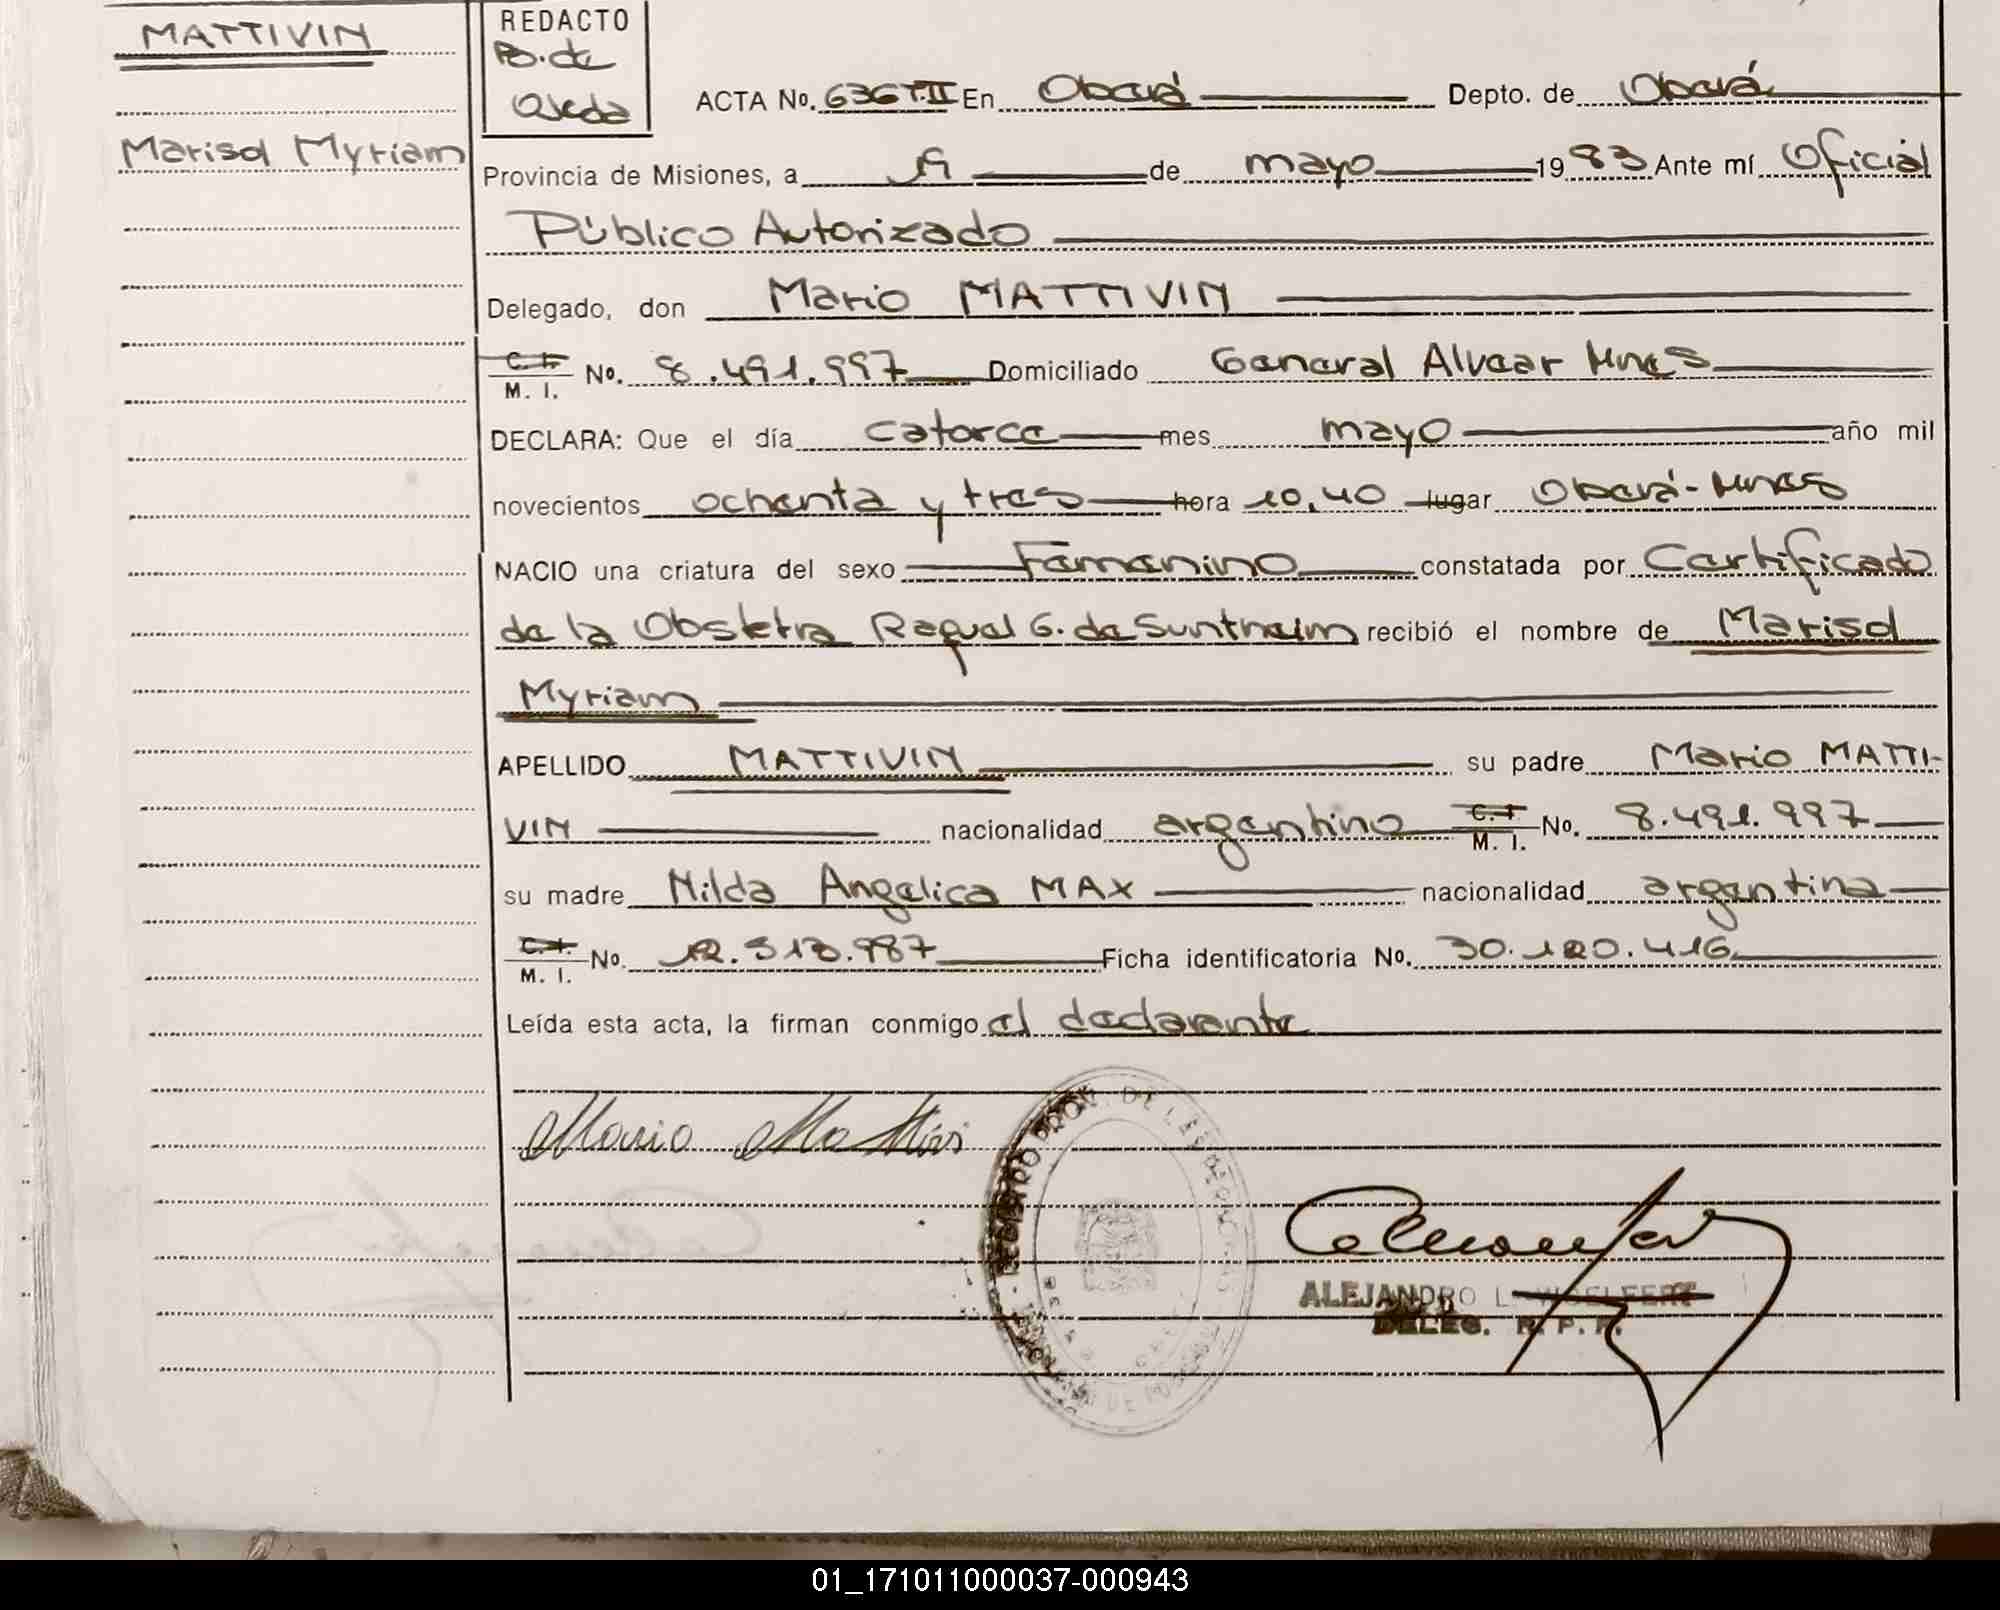 MATTIVIN
Marisol Myriam
REDACTO
B. de
Ojeda
ACTA No. 636 T.II En Oberá Depto. de Oberá
Provincia de Misiones, a de mayo 1983 Ante mí Oficial
Público Autorizado
Delegado, don Mario MATTIVIN
C. I. M. I. No. 8.491.997 Domiciliado General Alvear Mnes
DECLARA: Que el día catorce mes mayo año mil
novecientos ochenta y tres hora 10,40 lugar Oberá-Mnes
NACIO una criatura del sexo Femenino constatada por Certificado
de la Obstetra Raquel G. de Suntheim recibió el nombre de Marisol
Myriam
APELLIDO MATTIVIN su padre Mario MATTI-
VIN nacionalidad argentino C. I. M. I. No. 8.491.997
su madre Nilda Angelica MAX nacionalidad argentina
C. I. M. I. No. Ficha identificatoria No. 30.120.416
Leída esta acta, la firman conmigo el declarante
Mario Mattivi
ALEJANDRO L.
DELEG. R. P. P.
01_171011000037-000943